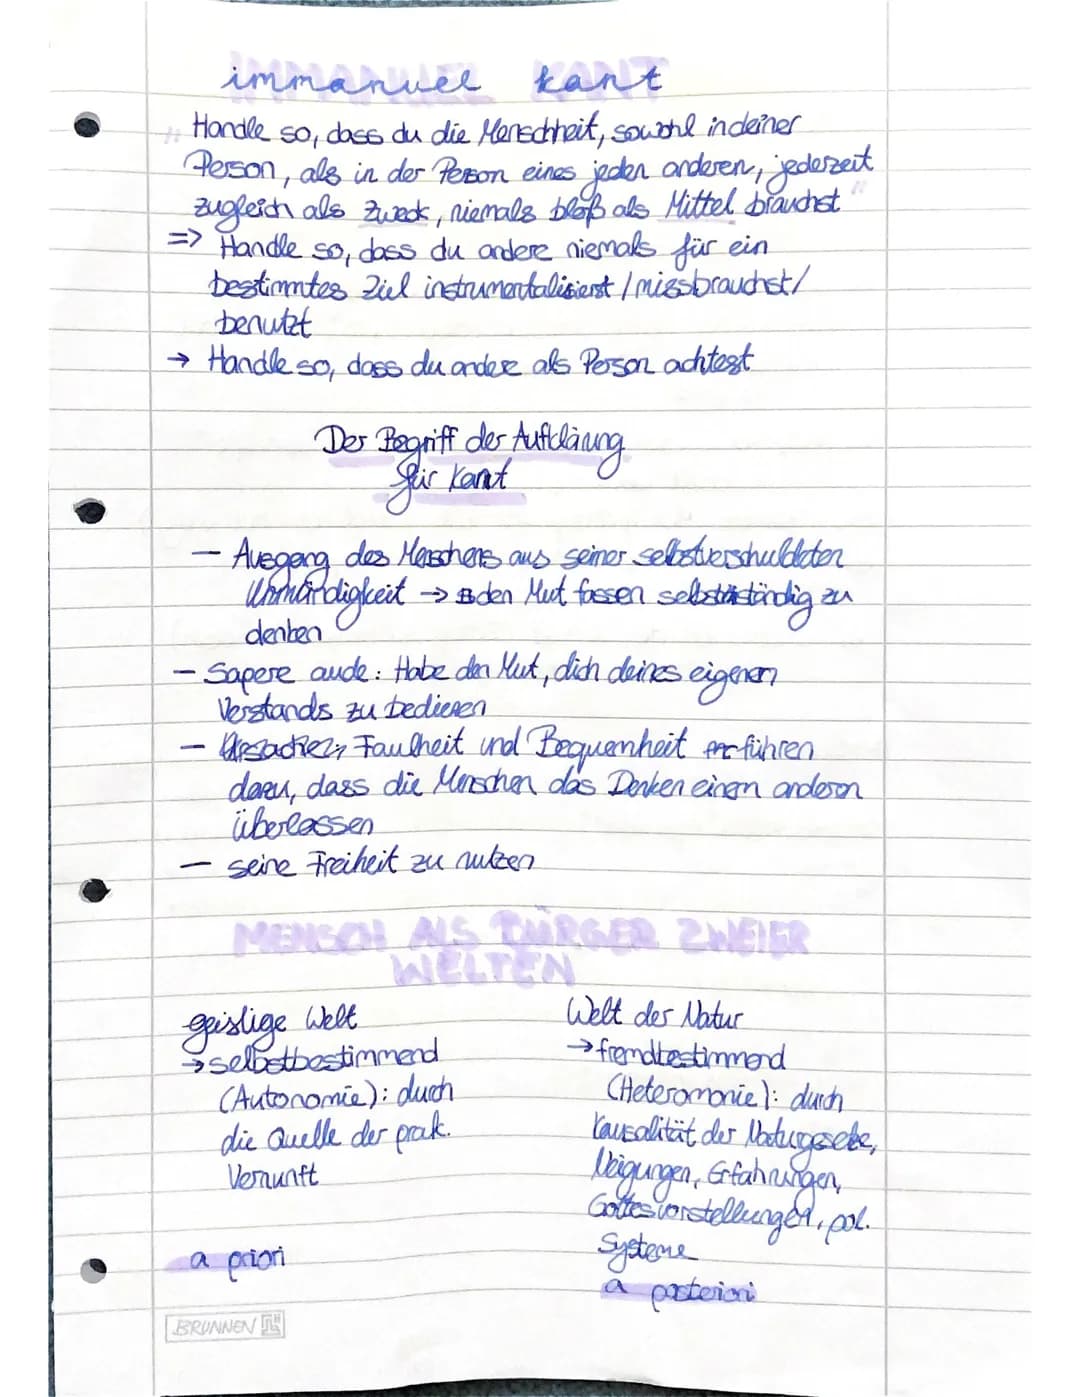 immanuel kant
"Handle so, dass du die Menschheit, sowohl in deiner
Person, als in der Person eines jeden anderen, jederzeit
zugleich als Zweck, niemals bloß als Mittel brauchst"
=> Handle so, dass du andere niemals für ein
bestimmtes Ziel instrumentalisierst / missbrauchst/
benutzt
→ Handle so, dass du andere als Person achtest
Der Begriff der Aufklärung
für Kant
- Ausgang des Menschens aus seiner selbstverschuldeten
Unmündigkeit → den Mut fassen selbstständig zu
denken
- Sapere aude: Habe den Mut, dich deines eigenen
Verstands zu bedienen
- Faulheit und Bequemheit führen
dazu, dass die Menschen das Denken einem anderen
überlassen
- seine Freiheit zu nutzen
MENSCH ALS BÜRGER ZWEIER
WELTEN
geistige Welt
→ selbstbestimmend
(Autonomie): durch
die Quelle der prak.
Vernunft
a priori
Welt der Natur
→ fremdbestimmend
(Heteromonie): durch
Kausalität der Naturgesetze,
Neigungen, Erfahrungen,
Gottesvorstellungen, pol.
Systeme
a posteriori
BRUNNEN